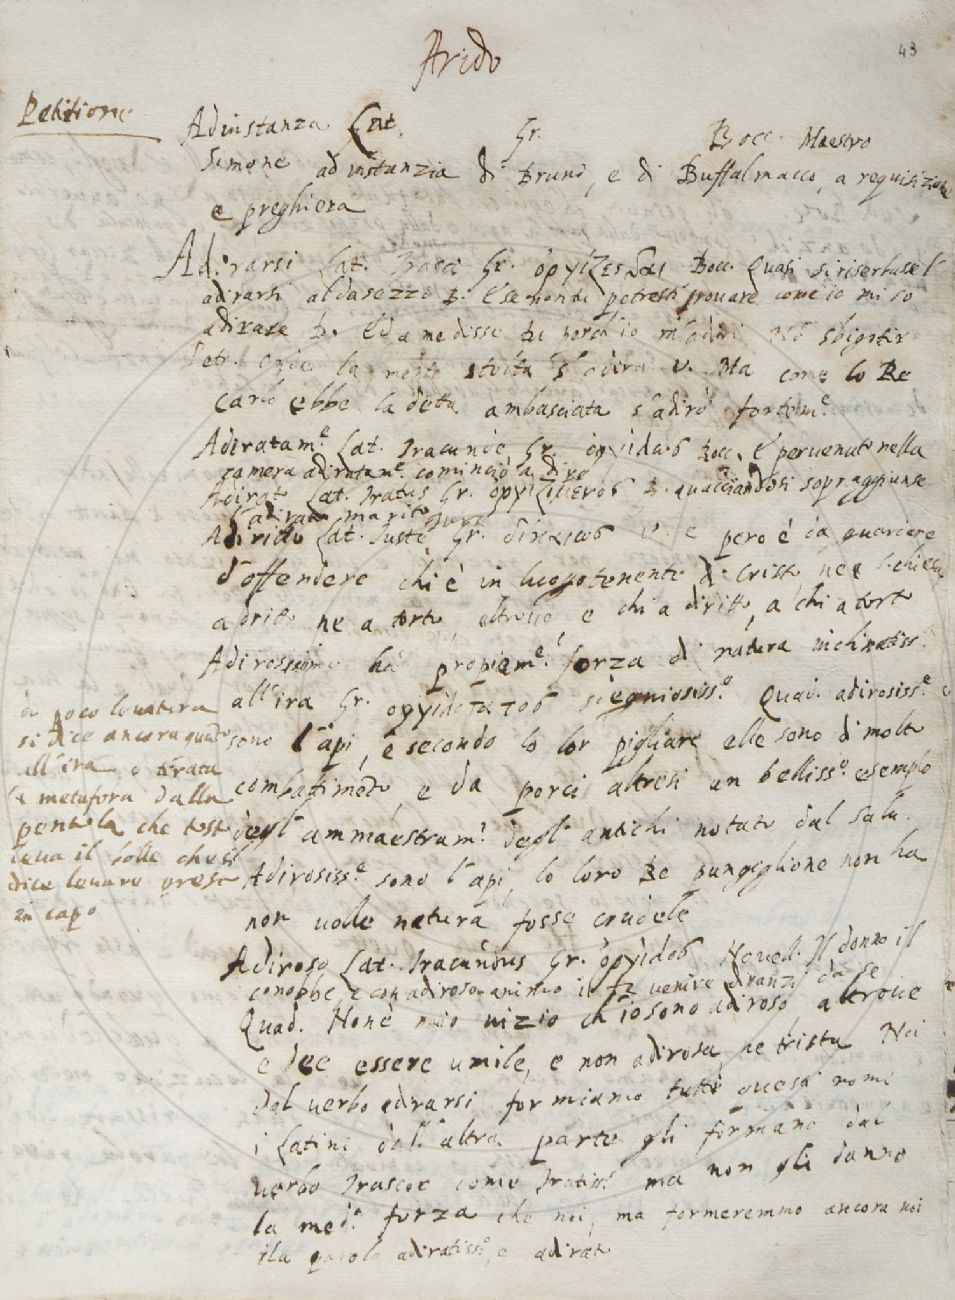 Arido
43
Petitione
Adinstanza Lat. Gr. Bocc. Maestro
Simone ad instanzia di Bruno, e di Buffalmacco, a requisizione
e preghiera
Adirarsi Lat. Irasci Gr. ὀργίζεσθαι Bocc. Quasi si riserbasse l'
adirarsi al dasezzo B. E se non ti potresti provare come io mi so
adirare B. Ed a me disse tu perch'io m'adiri Nō sbigotir
Petr. onde la mente stolta s'adira V. Ma come lo Re
Carlo ebbe la detta ambasciata s'adirò fortem.e
Adiratam.e Lat. Iracunde Gr. Bocc. E pervenuto nella
camera adiratam.e cominciò a dire
Adirato Lat. Iratus Gr. B. quacciandosi sopraggiunse
l'adirato marito
Adiritto Lat. Iuste jure Gr. δικαίως V. e però è da guardare
d'offendere chi è in luogotenente di Cristo, ne S. chiesa
a dritto ne a torto, altrove e chi a diritto, a chi a torto
Adirosissimo ha propiam.e forza di natura inclinatiss.
all'ira Gr. Quad. adirosiss.e
sono l'api, e secondo lo lor pigliare elle sono di molto
combattimēto, e da porci altresi un belliss.o esempio
degl' ammaestram.i degl' antichi notato dal Salv.
Adirosiss.e sono l'api, lo loro Re pungiglione non ha
non volle natura fosse crudele
di poco levatura
si dice ancora quādo
all'ira e tirata
la metafora dalla
pentola che tosto
leva il bolle che si
dice levare presto
in capo
Adiroso Lat. Iracundus Gr. Novel. Il donno il
conobbe, e con adiroso animo il fe venire dinanzi da se
Quad. Non è mio vizio ch'io sono adiroso, altrove
e dee essere umile, e non adirosa, ne trista Noi
dal verbo adirarsi formiamo tutti questi nomi
i Latini dall'altra parte gli formano dal
verbo Irascor come Iratus ma non gli danno
la med.a forza che noi, ma formeremmo ancora noi
la parola adiratiss.o, e adirato